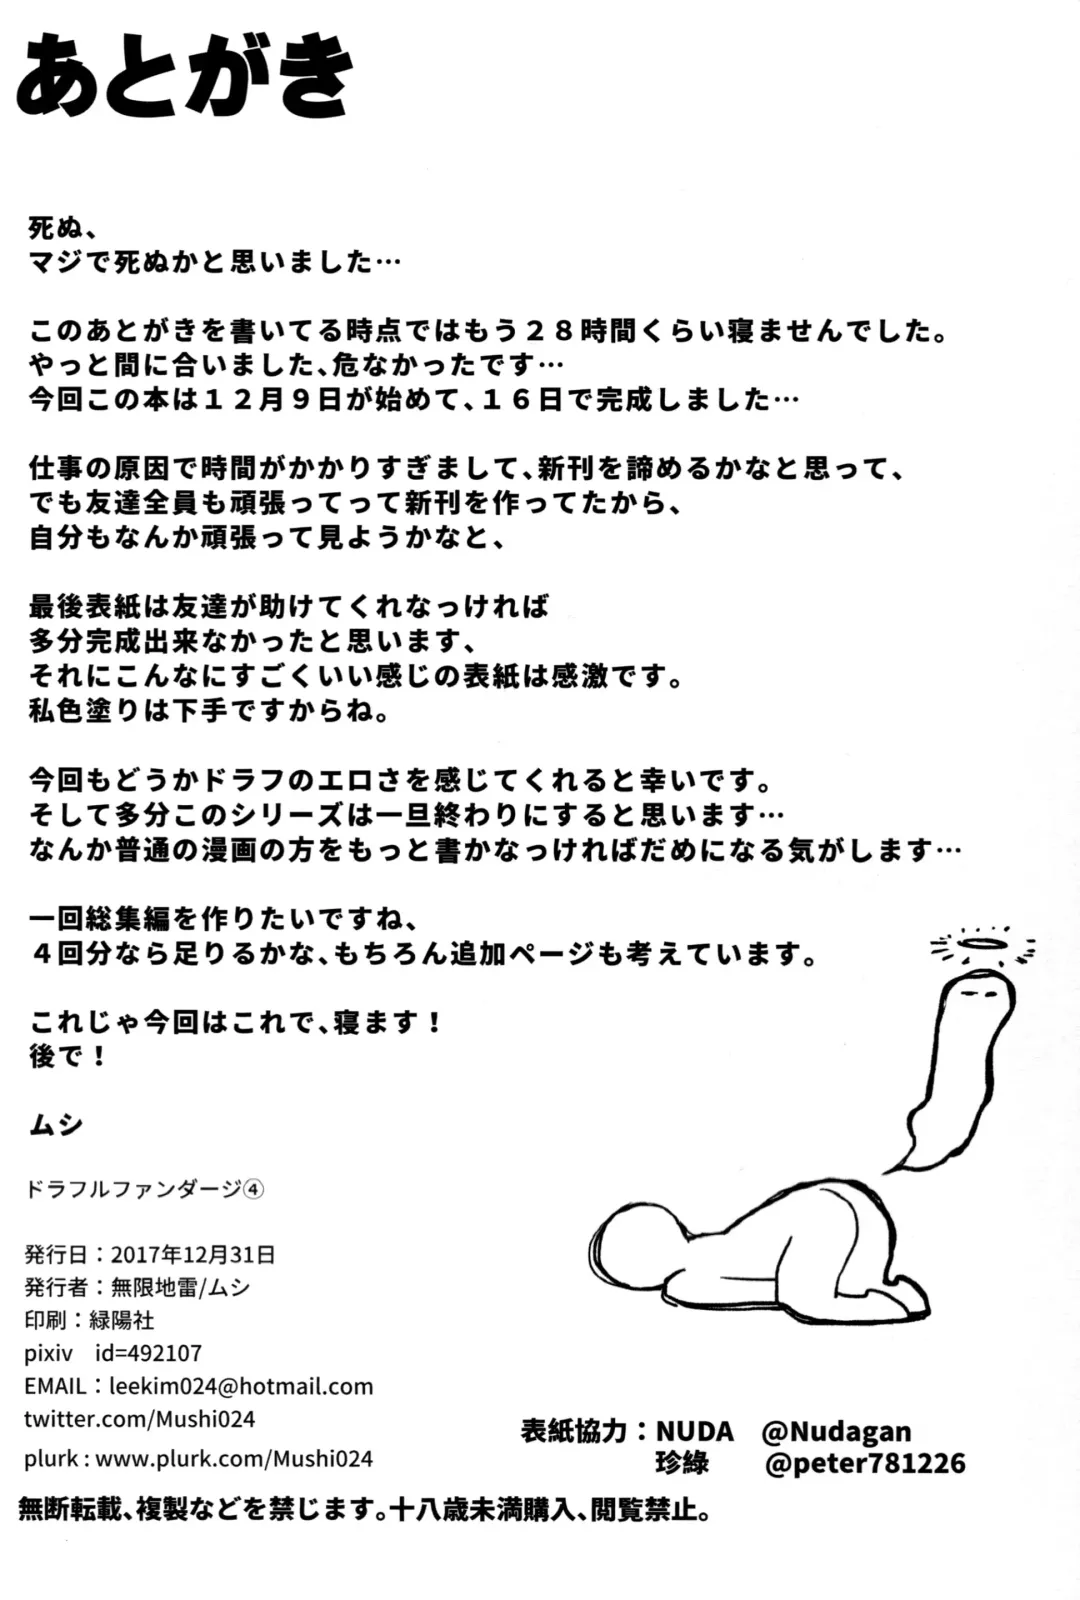 あとがき
死ぬ、
マジで死ぬかと思いました…
このあとがきを書いてる時点ではもう２８時間くらい寝ませんでした。
やっと間に合いました、危なかったです…
今回この本は１２月９日が始めて、１６日で完成しました…
仕事の原因で時間がかかりすぎまして、新刊を諦めるかなと思って、
でも友達全員も頑張ってって新刊を作ってたから、
自分もなんか頑張って見ようかなと、
最後表紙は友達が助けてくれなっければ
多分完成出来なかったと思います、
それにこんなにすごくいい感じの表紙は感激です。
私色塗りは下手ですからね。
今回もどうかドラフのエロさを感じてくれると幸いです。
そして多分このシリーズは一旦終わりにすると思います…
なんか普通の漫画の方をもっと書かなっければだめになる気がします…
一回総集編を作りたいですね、
４回分なら足りるかな、もちろん追加ページも考えています。
これじゃ今回はこれで、寝ます！
後で！
ムシ
ドラフルファンダージ④
発行日：2017年12月31日
発行者：無限地雷/ムシ
印刷：緑陽社
pixiv id=492107
EMAIL：leekim024@hotmail.com
twitter.com/Mushi024
plurk : www.plurk.com/Mushi024
表紙協力：NUDA @Nudagan
珍綠 @peter781226
無断転載、複製などを禁じます。十八歳未満購入、閲覧禁止。